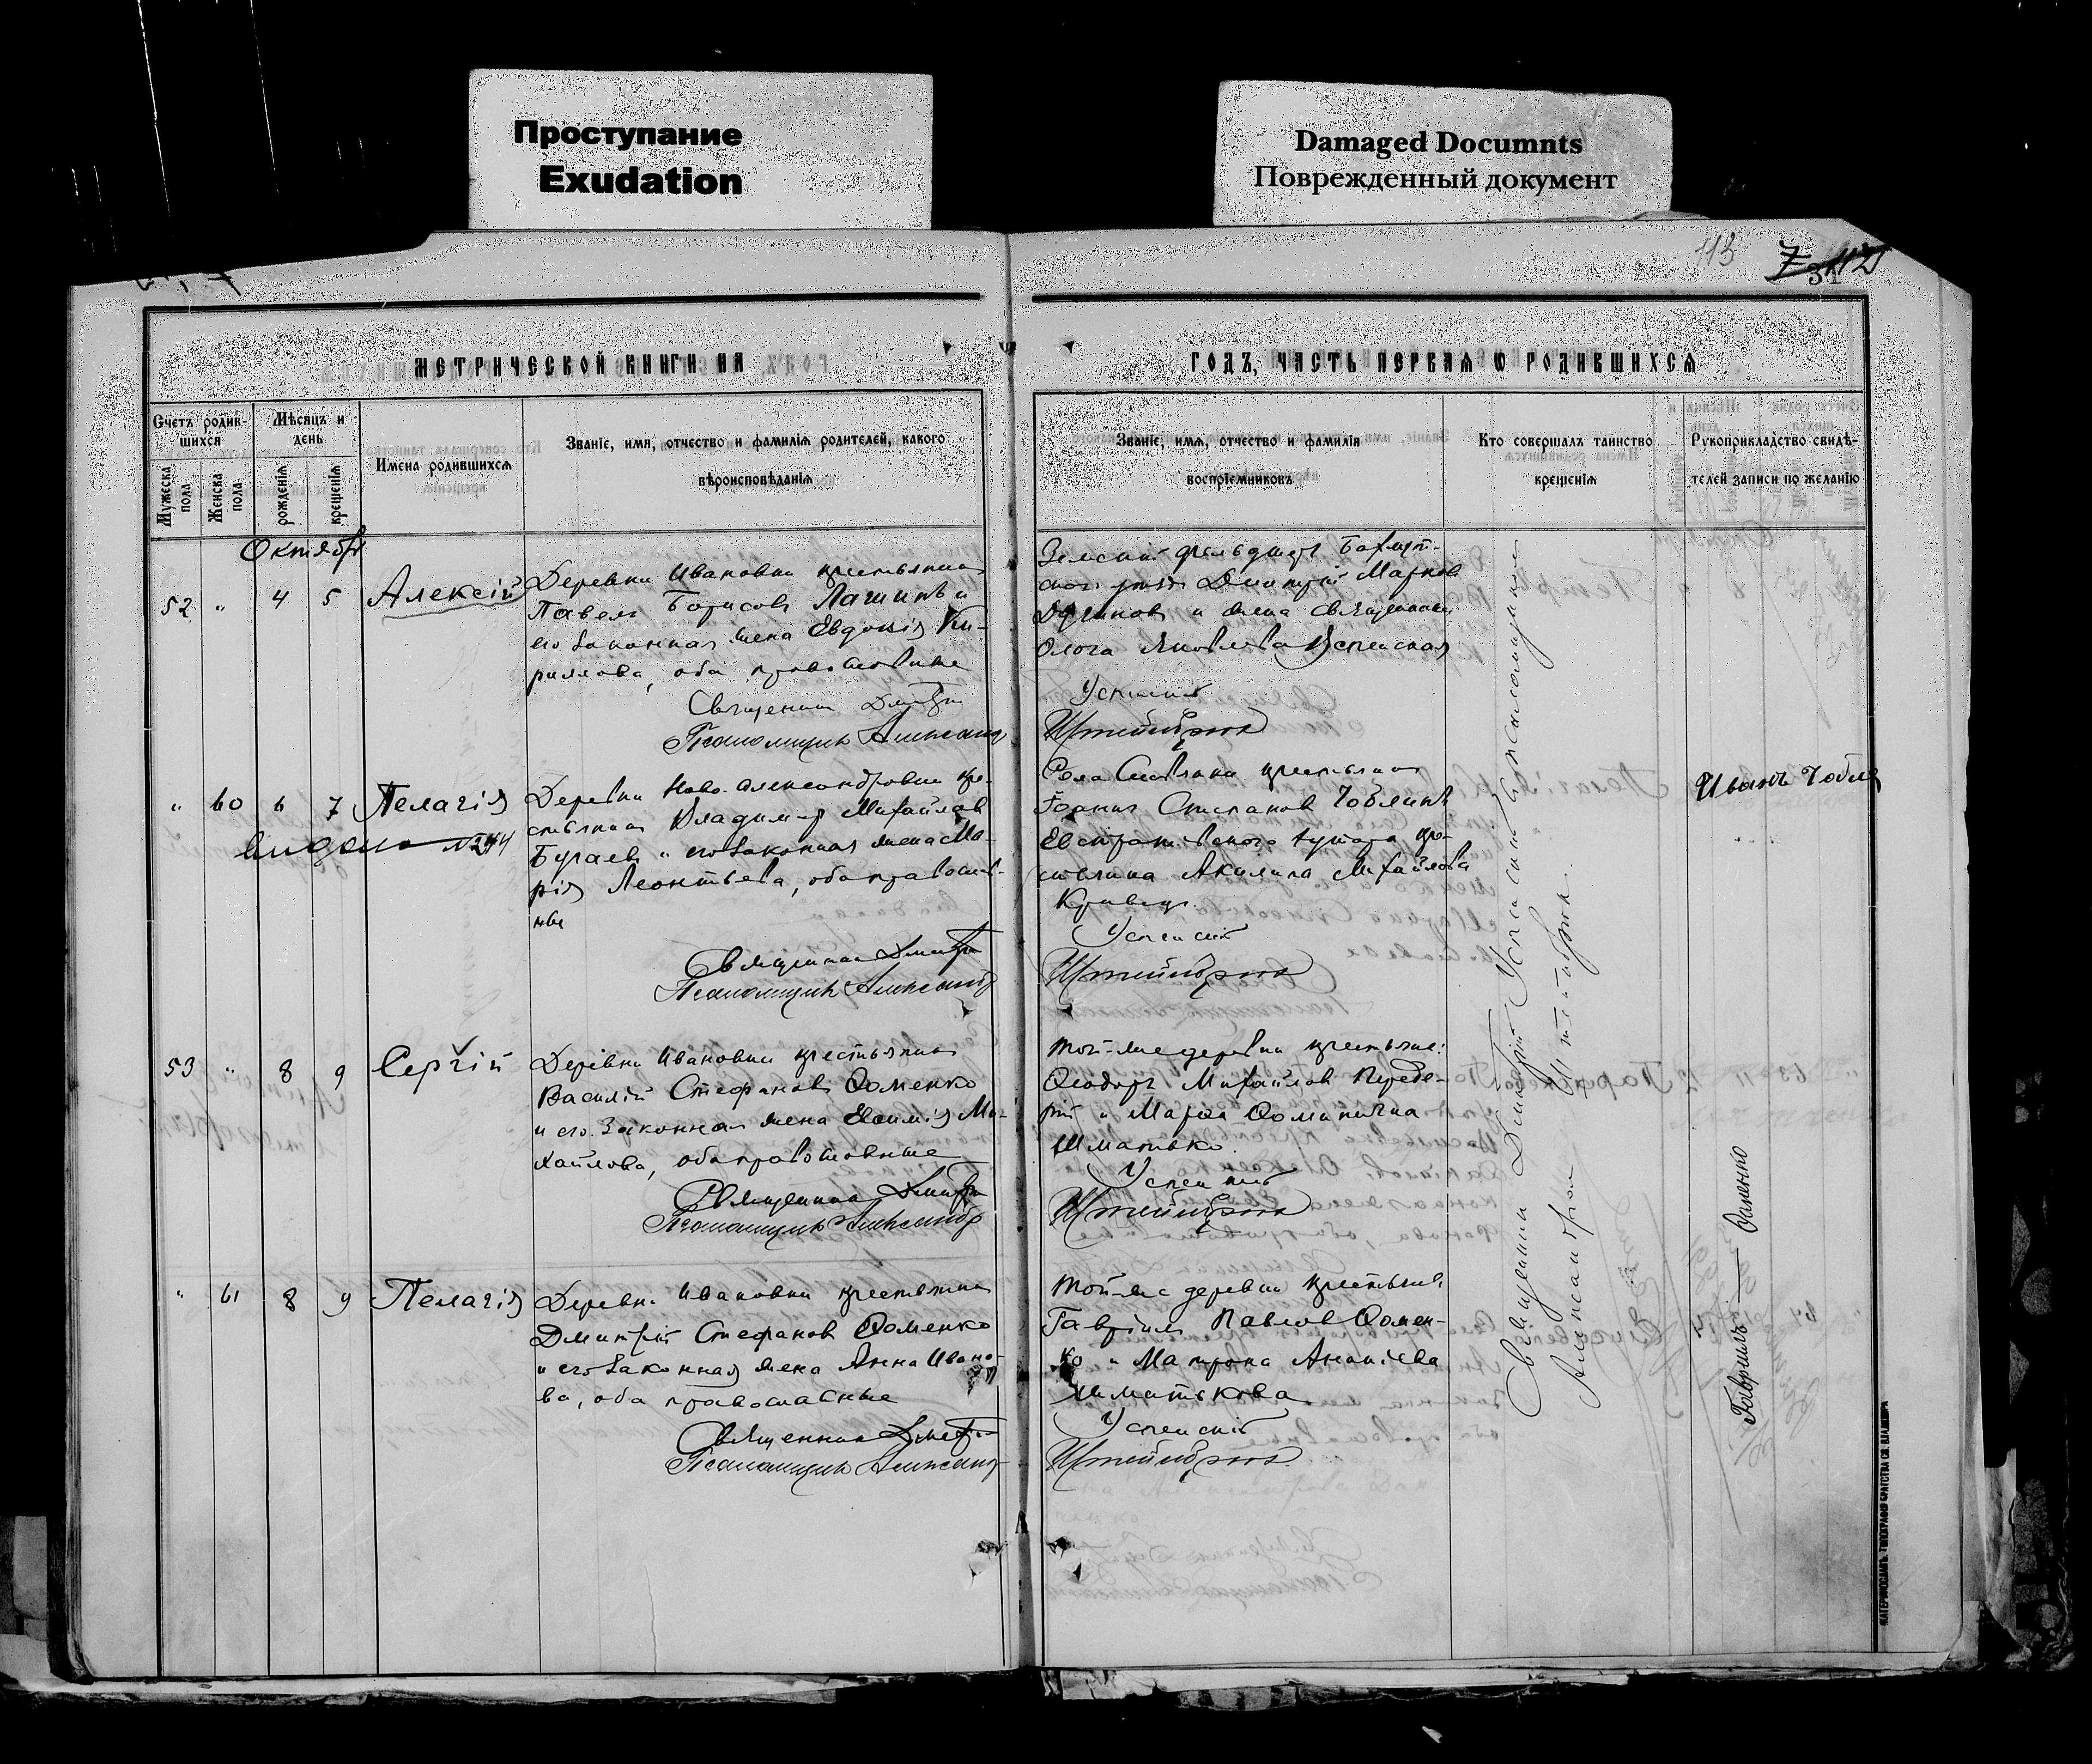 Проступание
Exudation
Damaged Documnts
Поврежденный документ
113
31
МЕТРИЧЕСКОЙ КНИГИ НА
ГОДЪ, ЧАСТЬ ПЕРВАЯ О РОДИВШИХСЯ
Счетъ родив-
шихся
Мужеска пола
Женска пола
Мѣсяцъ и
день
рожденія
крещенія
Имена родившихся
Званіе, имя, отчество и фамилія родителей, какого
вѣроисповѣданія
Званіе, имя, отчество и фамилія
воспріемниковъ
Кто совершалъ таинство
крещенія
Рукоприкладство свидѣ-
телей записи по желанію
Октябрь
52 " 4 5 Алексій
Деревни Ивановки крестьянинъ
Павелъ Борисовъ Лашинъ и
его законная жена Евдокія Ки-
риллова, оба православные
Священникъ Дмитрій
Псаломщикъ Александръ
Земскій фельдшеръ Бахмут-
скаго уѣзда Димитрій Марковъ
и жена священника
Ольга Яковлева Успенская
Успенскій
" 60 6 7 Пелагія
выдано №244
Деревни Ново-Александровки кре-
стьянинъ Владимиръ Михайловъ
Бугаевъ и его законная жена Ма-
рія Леонтьева, оба православ-
ные
Священникъ Дмитрій
Псаломщикъ Александръ
Села крестьянинъ
Іоаннъ Стефановъ
хутора кре-
стьянка Акилина Михайлова
Кравецъ
Успенскій
Иванъ
53 " 8 9 Сергій
Деревни Ивановки крестьянинъ
Василій Стефановъ Ѳоменко
и его законная жена Евѳимія Ми-
хайлова, оба православные
Священникъ Дмитрій
Псаломщикъ Александръ
Той-же деревни крестьяне:
Ѳеодоръ Михайловъ Переде-
рій и Марѳа Ѳоминична
Шматько.
Успенскій
" 61 8 9 Пелагія
Деревни Ивановки крестьянинъ
Димитрій Стефановъ Ѳоменко
и его законная жена Анна Ивано-
ва, оба православные
Священникъ Дмитрій
Псаломщикъ Александръ
Той-же деревни крестьяне
Гавріилъ Павловъ Ѳомен-
ко и Матрона Ананіева
Шматькова
Успенскій
Священникъ Димитрій Успенскій съ псаломщикомъ
Александромъ
Гавріилъ Ѳоменко
ЕКАТЕРИНОСЛАВЪ. ТИПОГРАФІЯ БРАТСТВА СВ. ВЛАДИМІРА